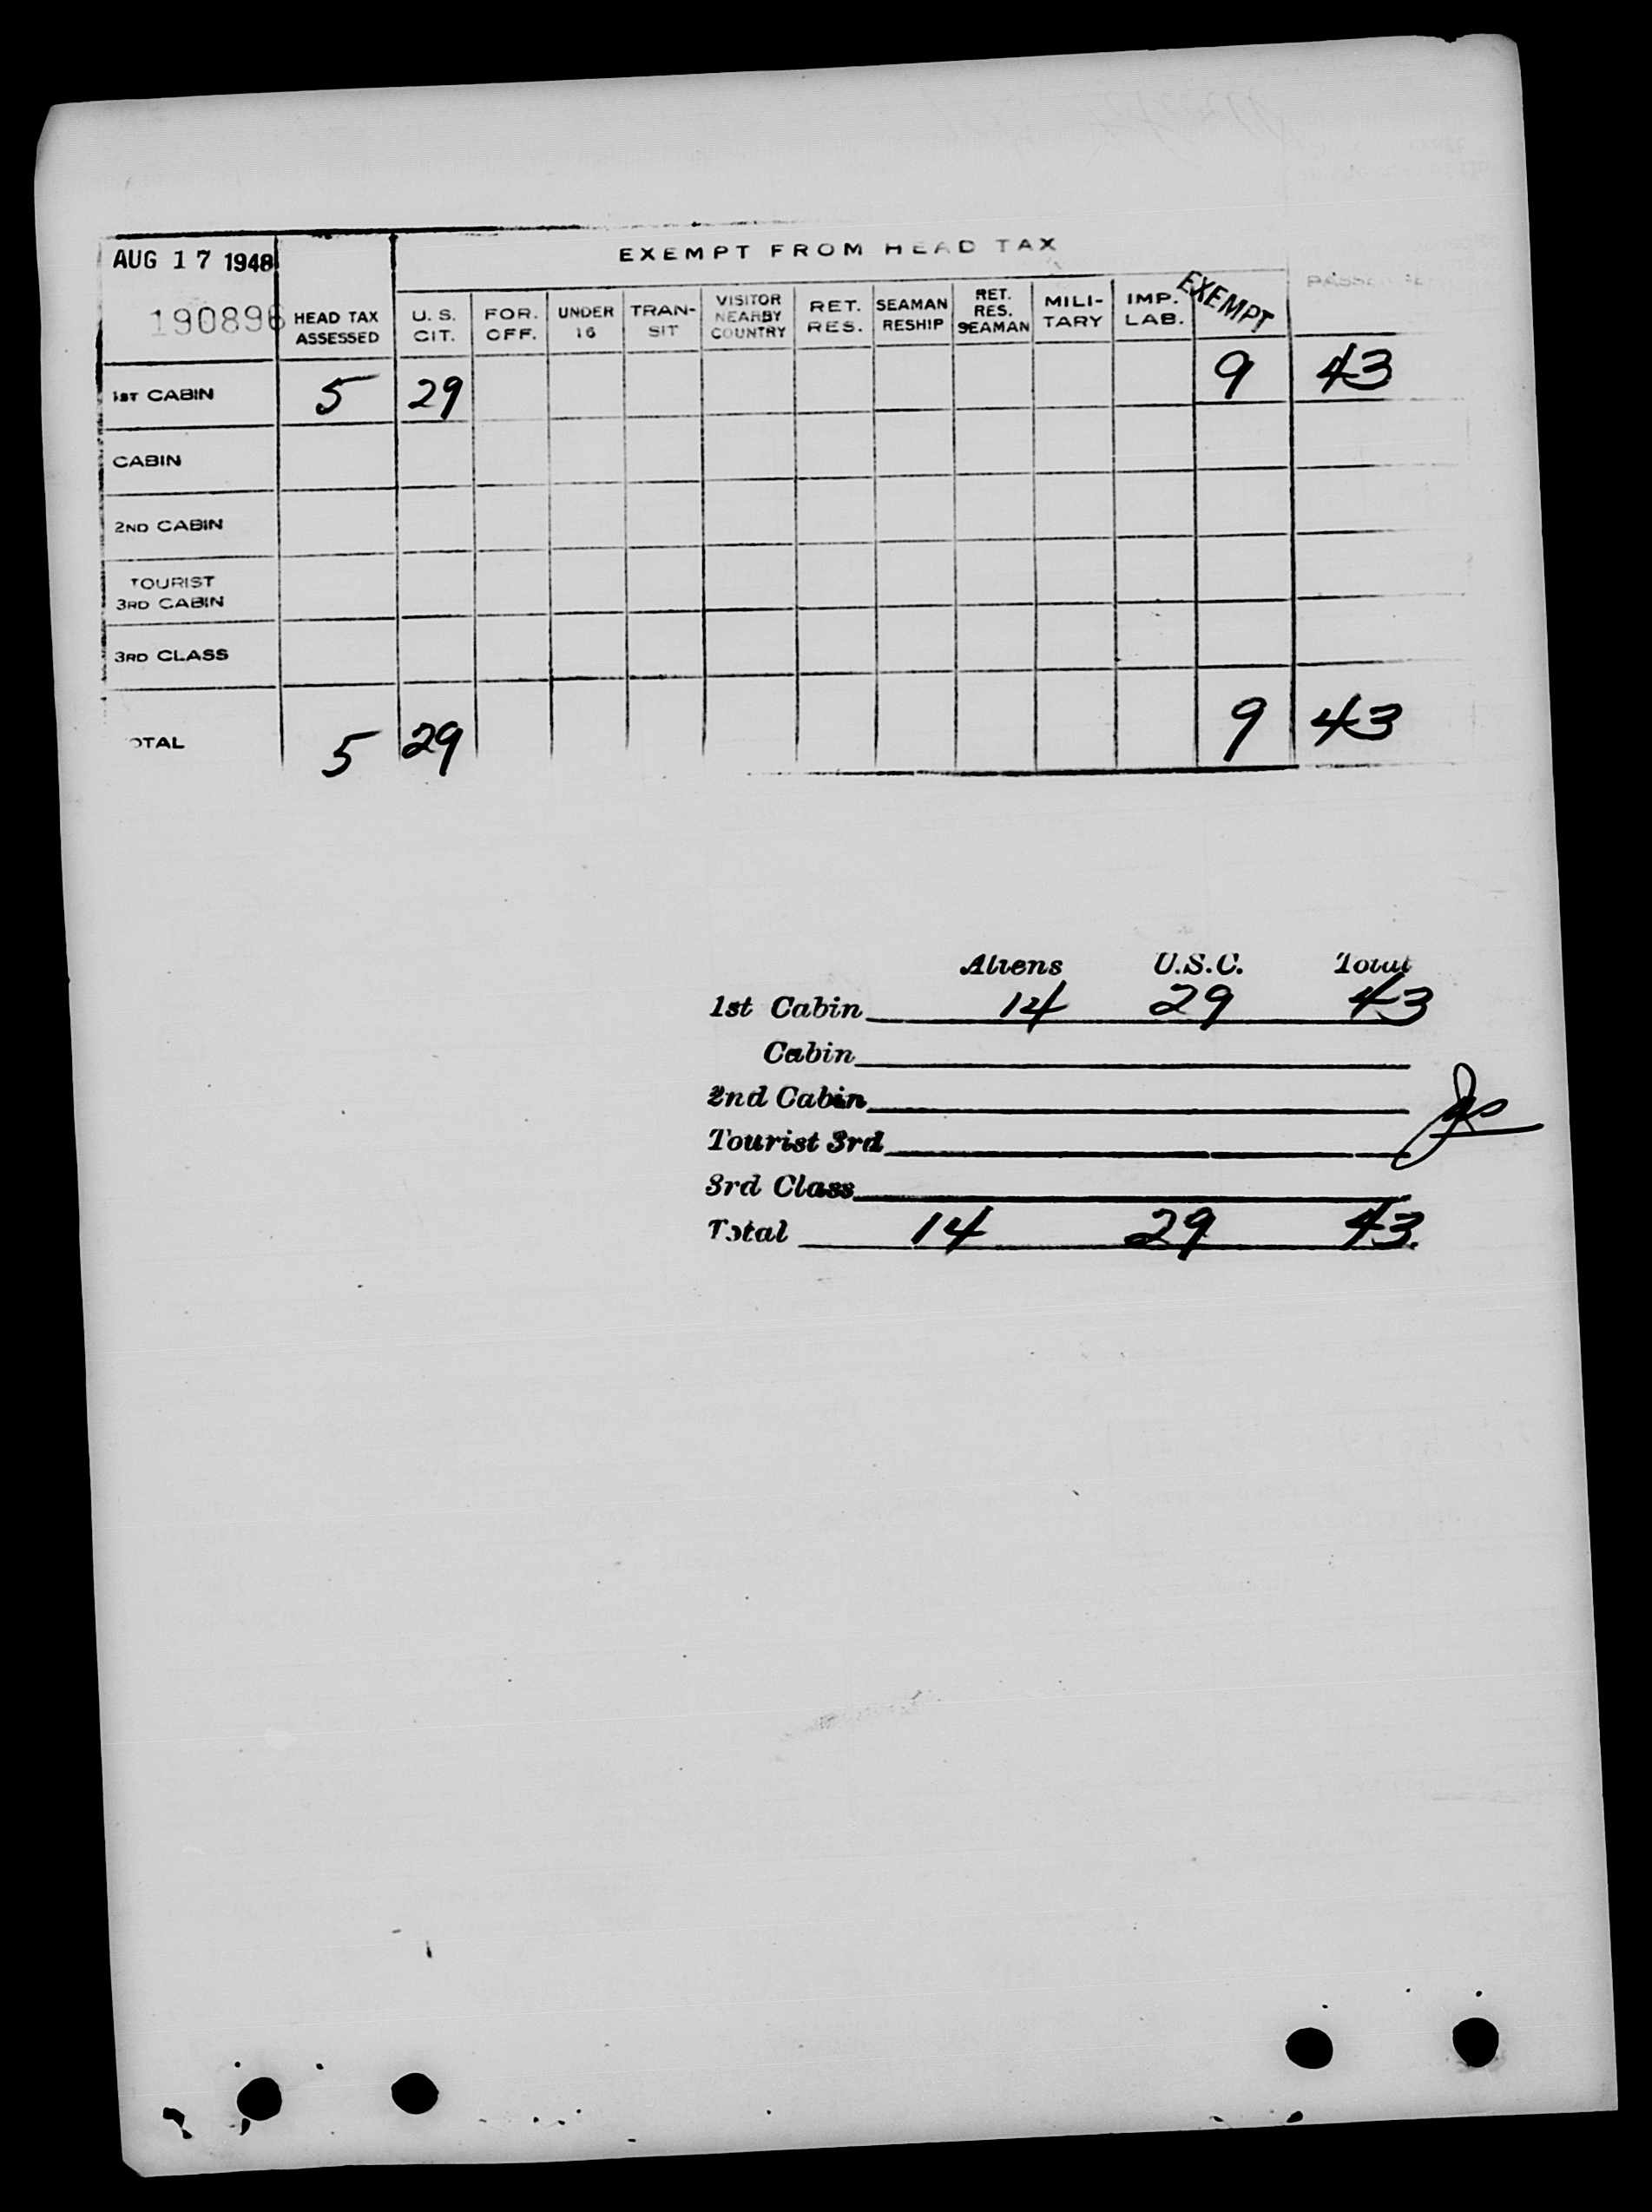 AUG 17 1948
EXEMPT FROM HEAD TAX
190896 HEAD TAX ASSESSED U. S. CIT. FOR. OFF. UNDER 16 TRAN-SIT VISITOR NEARBY COUNTRY RET. RES. SEAMAN RESHIP RET. RES. SEAMAN MILI-TARY IMP. LAB. EXEMPT
1ST CABIN 5 29 9 43
CABIN
2ND CABIN
TOURIST
3RD CABIN
3RD CLASS
OTAL 5 29 9 43
Aliens U.S.C. Total
1st Cabin 14 29 43
Cabin
2nd Cabin
Tourist 3rd
3rd Class
Total 14 29 43